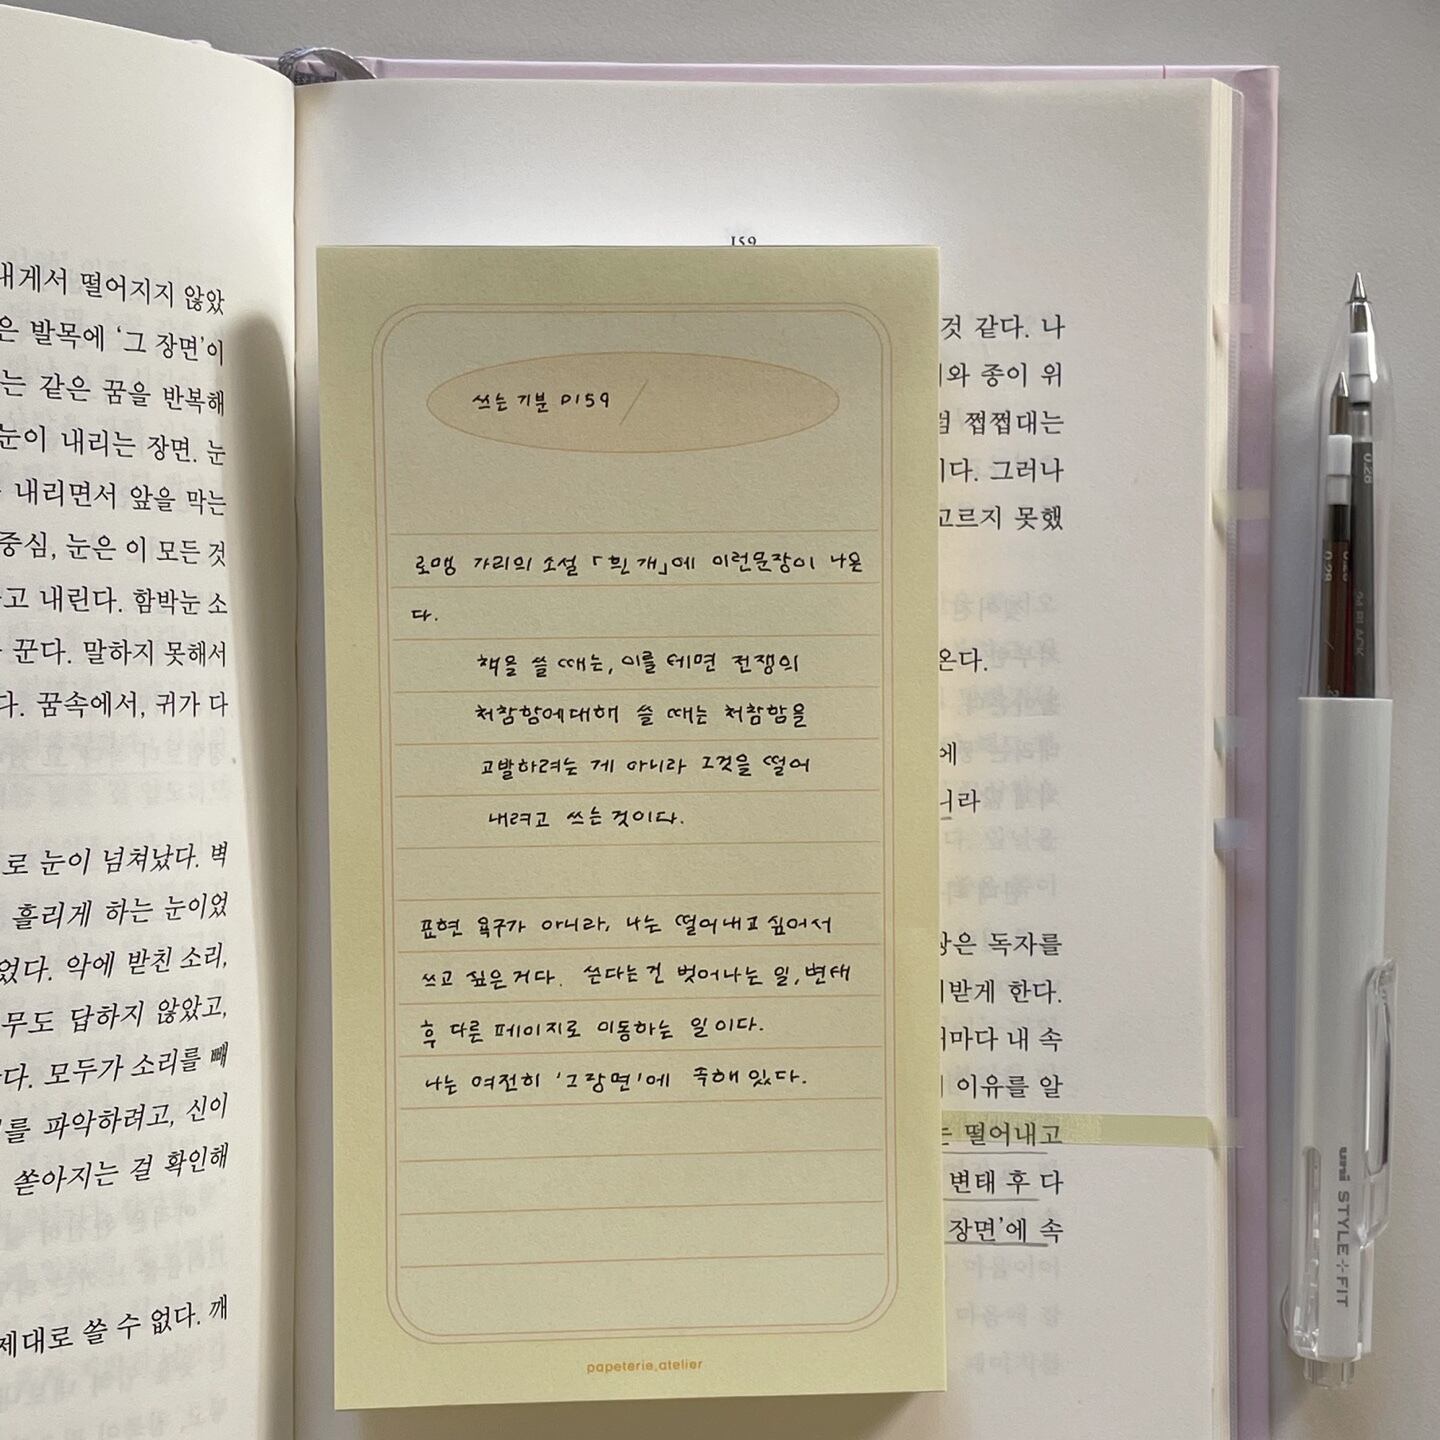 내게서 떨어지지 않았
은 발목에 ‘그 장면’이
는 같은 꿈을 반복해
눈이 내리는 장면. 눈
내리면서 앞을 막는
중심, 눈은 이 모든 것
고 내린다. 함박눈 소
꾼다. 말하지 못해서
다. 꿈속에서, 귀가 다
로 눈이 넘쳐났다. 벽
흘리게 하는 눈이었
었다. 악에 받친 소리,
무도 답하지 않았고,
다. 모두가 소리를 빼
를 파악하려고, 신이
쏟아지는 걸 확인해
제대로 쓸 수 없다. 깨
159
쓰는 기분 P159
로맹 가리의 소설 「흰 개」에 이런문장이 나온
다.
책을 쓸 때는, 이를 테면 전쟁의
처참함에대해 쓸 때는 처참함을
고발하려는 게 아니라 그것을 떨어
내려고 쓰는 것이다.
표현 욕구가 아니라, 나는 떨어내고 싶어서
쓰고 싶은거다. 쓴다는건 벗어나는 일, 변태
후 다른 페이지로 이동하는 일이다.
나는 여전히 '그장면'에 속해 있다.
papeterie.atelier
것 같다. 나
와 종이 위
쩝쩝대는
이다. 그러나
고르지 못했
온다.
에
니라
은 독자를
받게 한다.
마다 내 속
이유를 알
는 떨어내고
변태 후 다
장면’에 속
0.28
0.28
BLACK
uni STYLE FIT